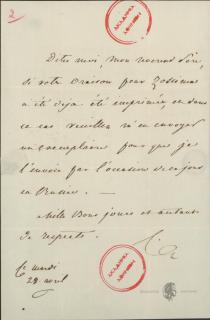 2
ΑΚΑΔΗΜΙΑ ΑΘΗΝΩΝ
Dites moi, mon
si votre oraison pour Zossima
a été déjà été imprimée et dans
ce cas veuillez m'en envoyer
un exemplaire pour que je
l'envoie par l'occasion de ce jour
en Russie. —
Mille bons jours et autant
de respects.
ΑΚΑΔΗΜΙΑ ΑΘΗΝΩΝ
Ce mardi
28 avril